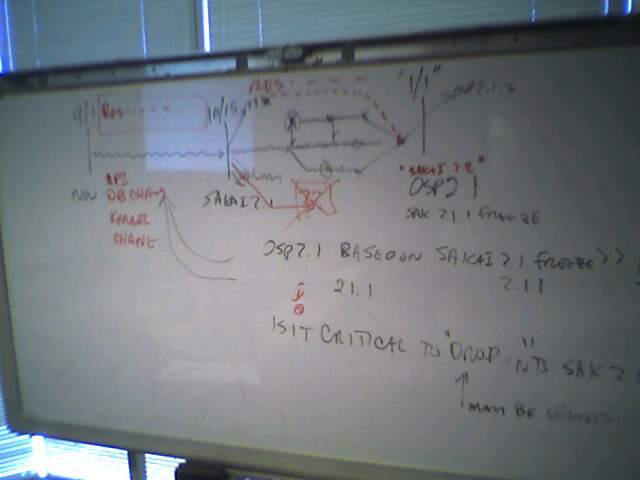 9/1
10/15
"1/1"
OSP2.1.
NOW
API
DB CHANG
KERNEL
CHANGE
SAKAI 2.1
"SAKAI 2.2"
OSP2 1
SAK 2 1 1 FREEZE
OSP2.1 BASED ON SAKAI 2 1 FREEZE??
2 1.1
2.1.1
IS IT CRITICAL TO "DROP INTO" SAK 2
MAY BE CHANGES